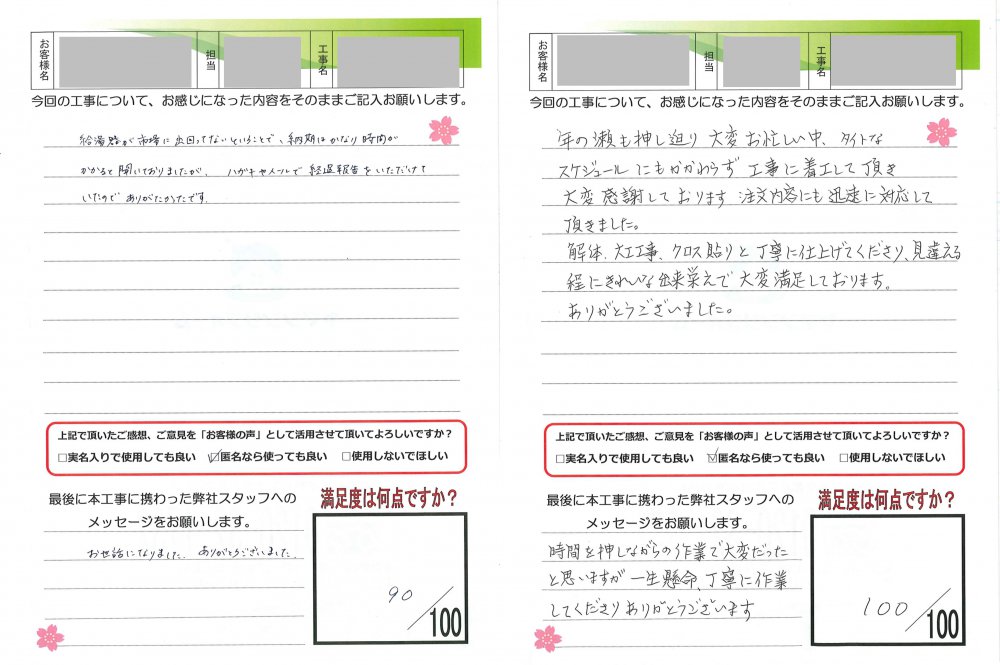 お客様名
担当
工事名
今回の工事について、お感じになった内容をそのままご記入お願いします。
給湯器が市場に出回ってないということで、納期はかなり時間が
かかると聞いておりましたが、ハガキやメールで経過報告をいただけて
いたので ありがたかったです。
上記で頂いたご感想、ご意見を「お客様の声」として活用させて頂いてよろしいですか?
□実名入りで使用しても良い ☑匿名なら使っても良い □使用しないでほしい
最後に本工事に携わった弊社スタッフへの
メッセージをお願いします。
お世話になりました。ありがとうございました。
満足度は何点ですか?
90/100
お客様名
担当
工事名
今回の工事について、お感じになった内容をそのままご記入お願いします。
年の瀬も押し迫り 大変お忙しい中、タイトな
スケジュールにもかかわらず 工事に着工して頂き
大変感謝しております 注文内容にも迅速に対応して
頂きました。
解体、大工工事、クロス貼りと丁寧に仕上げてくださり、見違える
程にきれいな出来栄えで大変満足しております。
ありがとうございました。
上記で頂いたご感想、ご意見を「お客様の声」として活用させて頂いてよろしいですか?
□実名入りで使用しても良い ☑匿名なら使っても良い □使用しないでほしい
最後に本工事に携わった弊社スタッフへの
メッセージをお願いします。
時間を押しながらの作業で大変だった
と思いますが 一生懸命、丁寧に作業
してくださりありがとうございます
満足度は何点ですか?
100/100